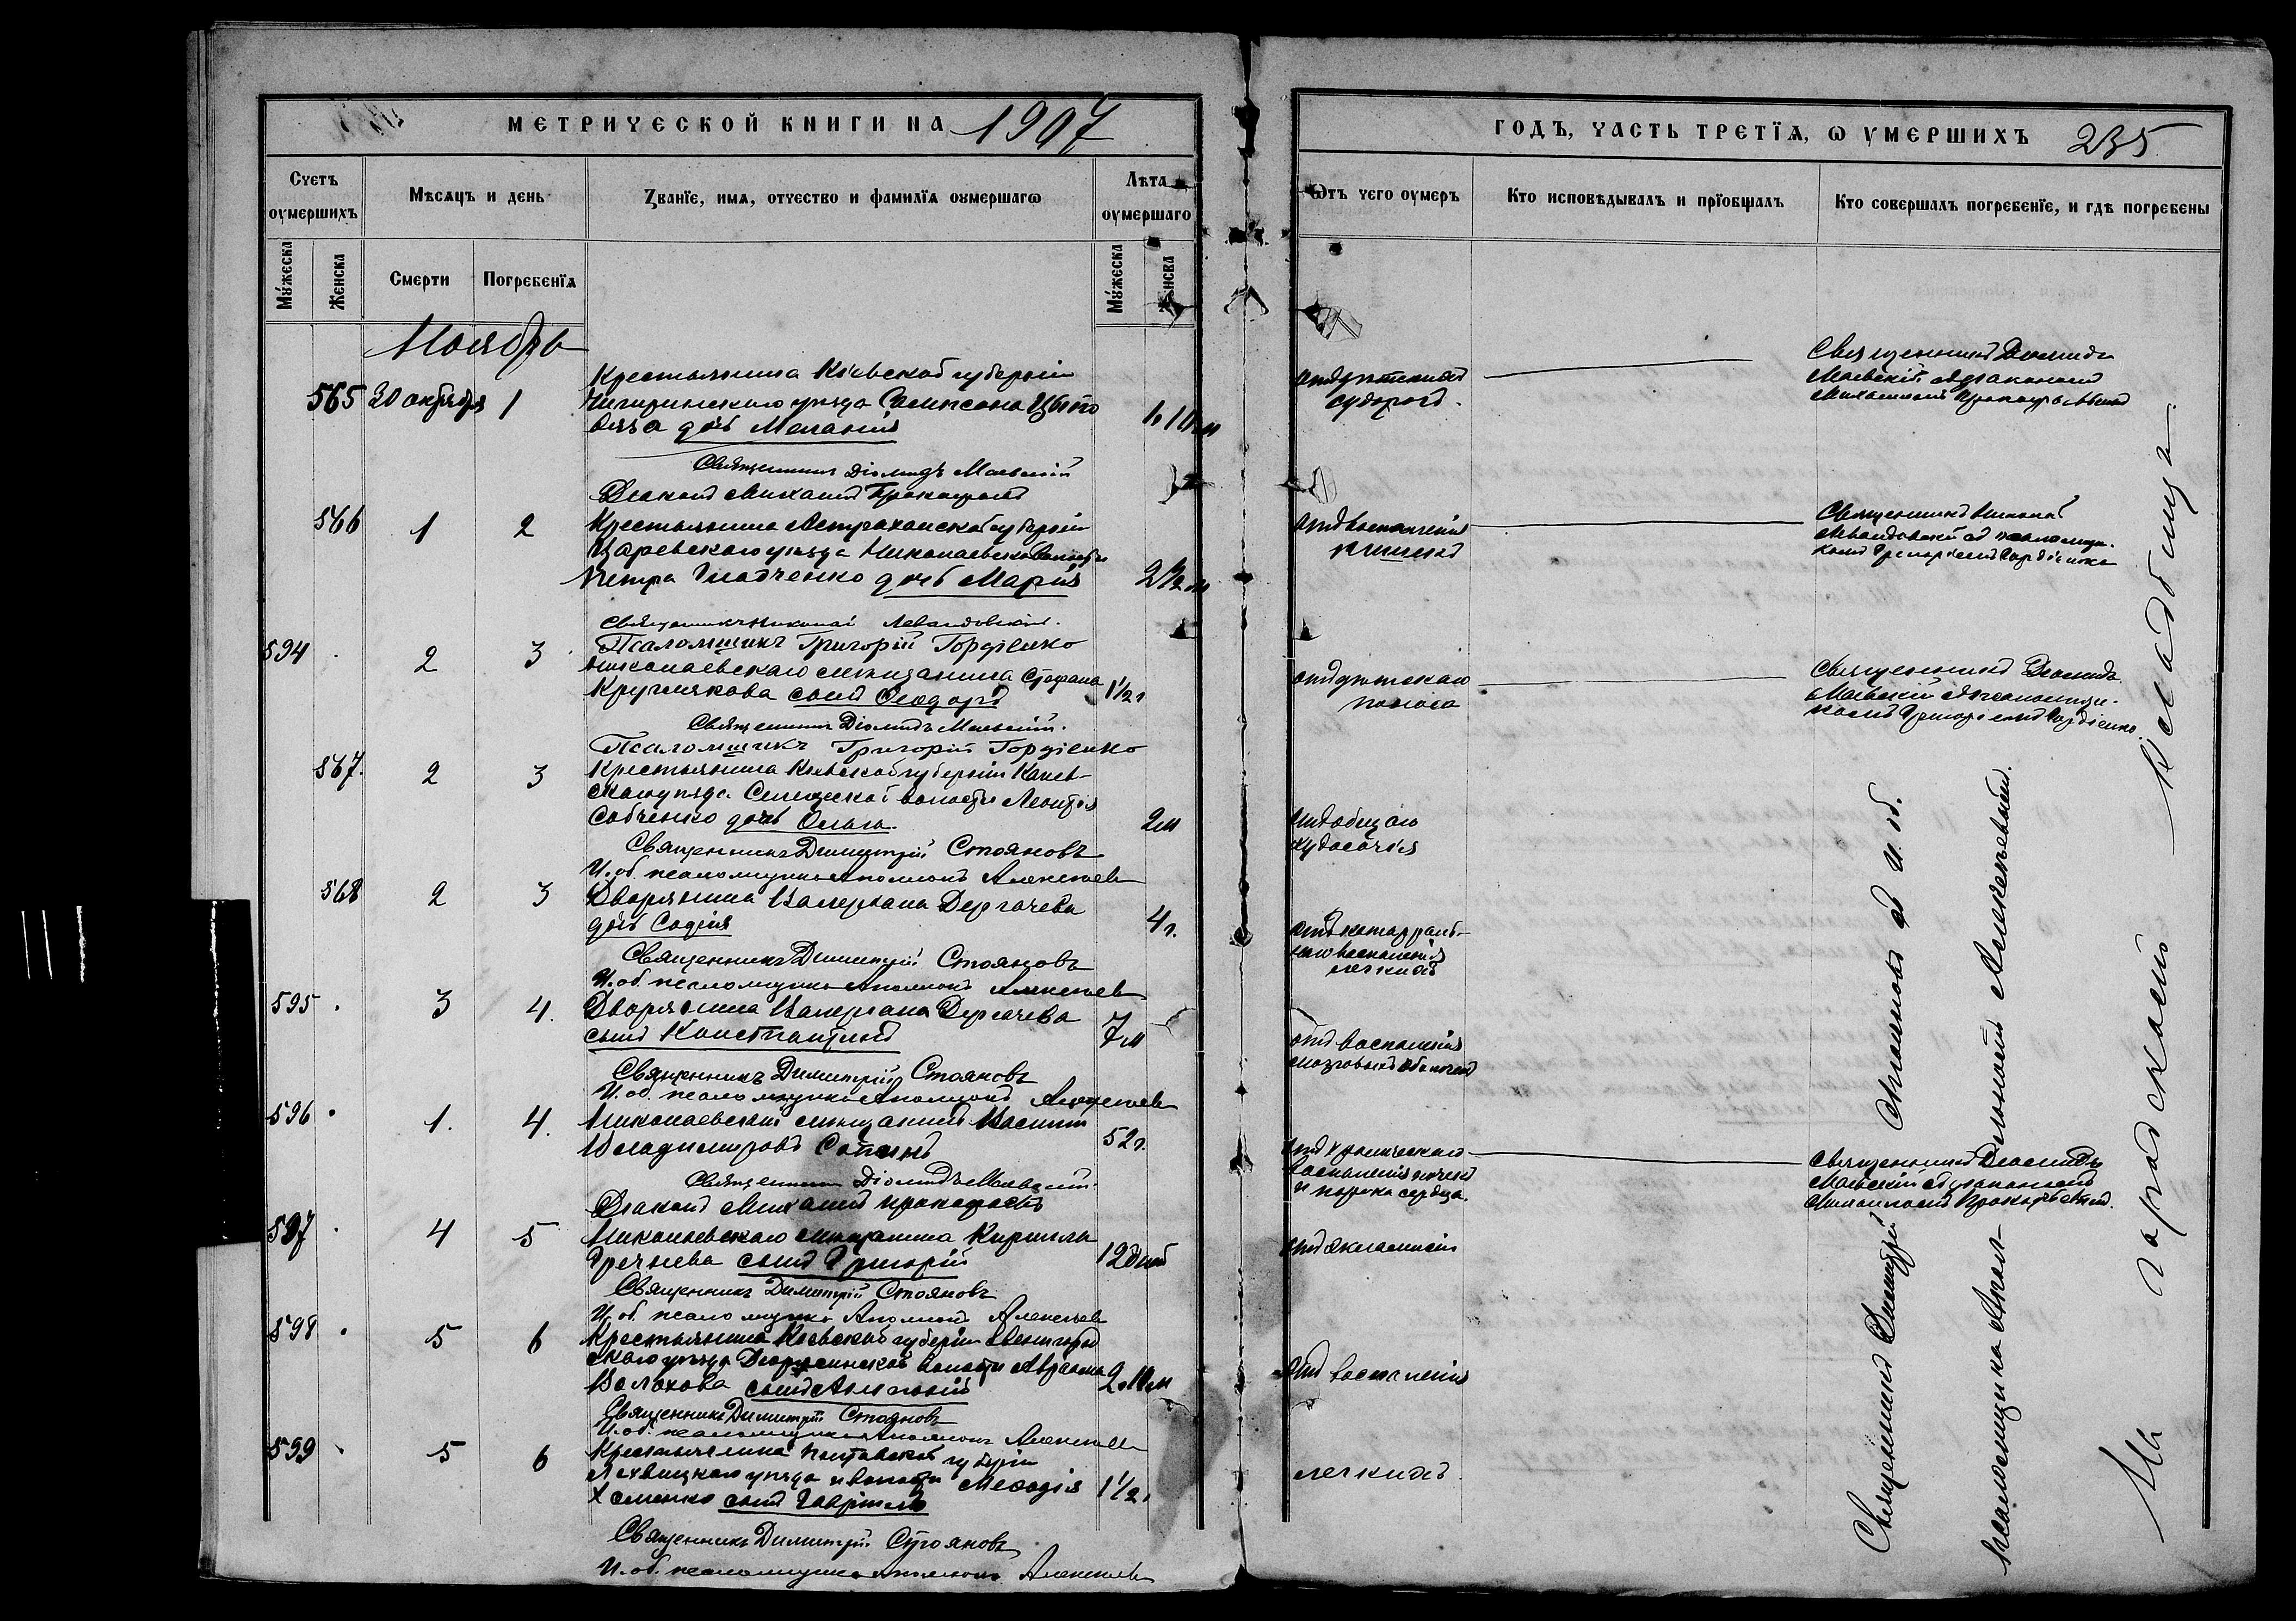 МЕТРИЧЕСКОЙ КНИГИ НА 1907
Счетъ оумершихъ
Мѣсяцъ и день
Званїе, имя, отчество и фамилїя оумершагѡ
Лѣта оумершаго
Мужеска
Женска
Смерти
Погребенїя
Мужеска
Женска
Ноябрь
565 30 октября 1
Крестьянина Кіевской губерніи
Чигиринскаго уѣзда Сампсона
дочь Меланія
1г 10м
Священникъ Діомидъ Маевскій
Діаконъ Михаилъ Прокофьевъ
566 1 2
Крестьянина Астраханской губерніи
Царевскаго уѣзда Николаевской волости
Петра Гладченко дочь Марія
2 1/2 м
Священникъ Николай Левандовскій.
Псаломщикъ Григорій Гордіенко
594 2 3
Николаевскаго мѣщанина Стефана
Кругликова сынъ Ѳеодоръ
1 1/2 г
Священникъ Діомидъ Маевскій.
Псаломщикъ Григорій Гордіенко
567. 2 3
Крестьянина Кіевской губерніи Канев-
скаго уѣзда волости Леонтія
Собченко дочь Ольга.
2м
Священникъ Димитрій Стояновъ
И. об. псаломщика Аполлонъ Алексѣевъ
568 2 3
Дворянина Валеріана Дергачева
дочь Софія
4 г.
Священникъ Димитрій Стояновъ
И. об. псаломщика Аполлонъ Алексѣевъ
595 3 4.
Дворянина Валеріана Дергачева
сынъ Константинъ
7м
Священникъ Димитрій Стояновъ
И. об. псаломщика Аполлонъ Алексѣевъ
596 1. 4.
Николаевскій мѣщанинъ Василій
Владиміровъ
52 г.
Священникъ Діомидъ Маевскій.
Діаконъ Михаилъ Прокофьевъ
597 4 5
Николаевскаго мѣщанина Кирилла
Гречнева сынъ Григорій
12 дней
Священникъ Димитрій Стояновъ
И. об. псаломщика Аполлонъ Алексѣевъ
598 5 6
Крестьянина Кіевской губерніи Звенигород
скаго уѣзда волости Авраама
Волохова сынъ
2г 10м
Священникъ Димитрій Стояновъ
И. об. псаломщика Аполлонъ Алексѣевъ
599 5 6
Крестьянина Полтавской губерніи
Лохвицкаго уѣзда и волости Меѳодія
Хоменко сынъ Гавріилъ
1 1/2 г
Священникъ Димитрій Стояновъ
И. об. псаломщика Аполлонъ Алексѣевъ
ГОДЪ, ЧАСТЬ ТРЕТЇЯ, Ѡ УМЕРШИХЪ 235
Ѿтъ чего оумеръ
Кто исповѣдывалъ и прїобщалъ
Кто совершалъ погребенїе, и гдѣ погребены
отъ дѣтскихъ
судорогъ.
Священникъ Діомидъ
Маевскій съ діакономъ
Михаиломъ Прокофьевымъ
отъ воспаленія
кишекъ
Священникъ Николай
Левандовскій съ псаломщи-
комъ Григоріемъ Гордіенко
отъ дѣтскаго
поноса
Священникъ Діомидъ
Маевскій съ псаломщи-
комъ Григоріемъ Гордіенко.
отъ общаго
худосочія
отъ катарраль-
наго воспаленія
легкихъ
отъ воспаленія
мозговыхъ оболочекъ
отъ хроническаго
воспаленія почекъ
и порока сердца.
Священникъ Діомидъ
Маевскій съ діакономъ
Михаиломъ Прокофьевымъ.
отъ эклампсіи
отъ воспаленія
легкихъ
Священникъ Димитрій Стояновъ съ и. об.
псаломщика Аполлономъ Алексѣевымъ.
На городскомъ кладбищѣ.